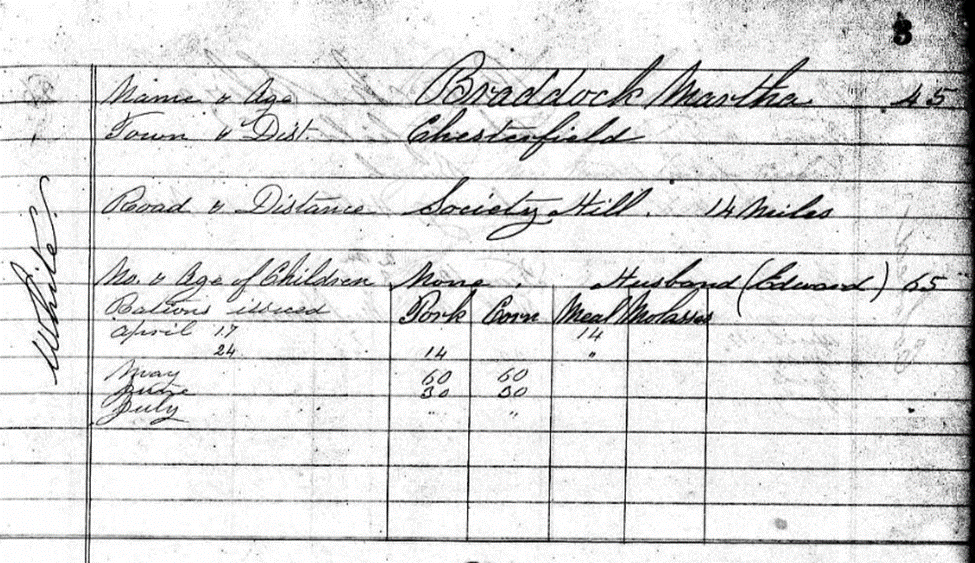 3
Name & Age Braddock Martha 45
Town & Dist. Chesterfield
Road & Distance Society Hill. 14 Miles
White.
No. & Age of Children None. Husband (Edward) 65
Rations issued Pork Corn Meal Molasses
April 17 14
24 14 "
May 60 60
June 30 30
July " "